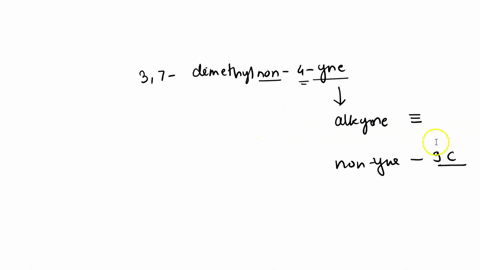 3,7- dimethyl non - 4 - yne
alkyne ≡
non-yne - 9C